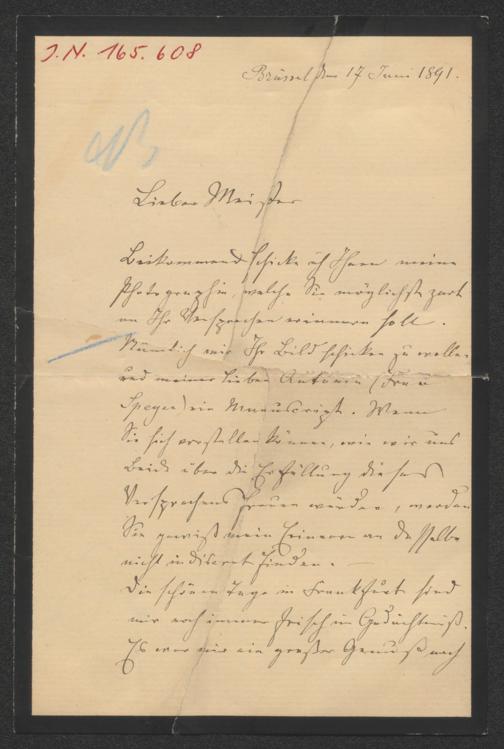 J.N. 165.608
Brüssel den 17 Juni 1891.
Lieber Meister
Beikommend schicke ich Ihnen meine
Photographie, welche Sie möglichst zart
an Ihr Versprechen erinnern soll.
Nämlich mir Ihr Bild schicken zu wollen
und meiner lieben Antonia (Frau
Speyer) ein Manuscript. Wenn
Sie sich vorstellen können, wie wir uns
Beide über die Erfüllung dieses
Versprechens freuen würden, werden
Sie gewiß mein Erinnern an dasselbe
nicht indiscret finden. —
Die schönen Tage in Frankfurt sind
mir noch immer frisch im Gedächtniß.
Es war mir ein großer Genuß nach